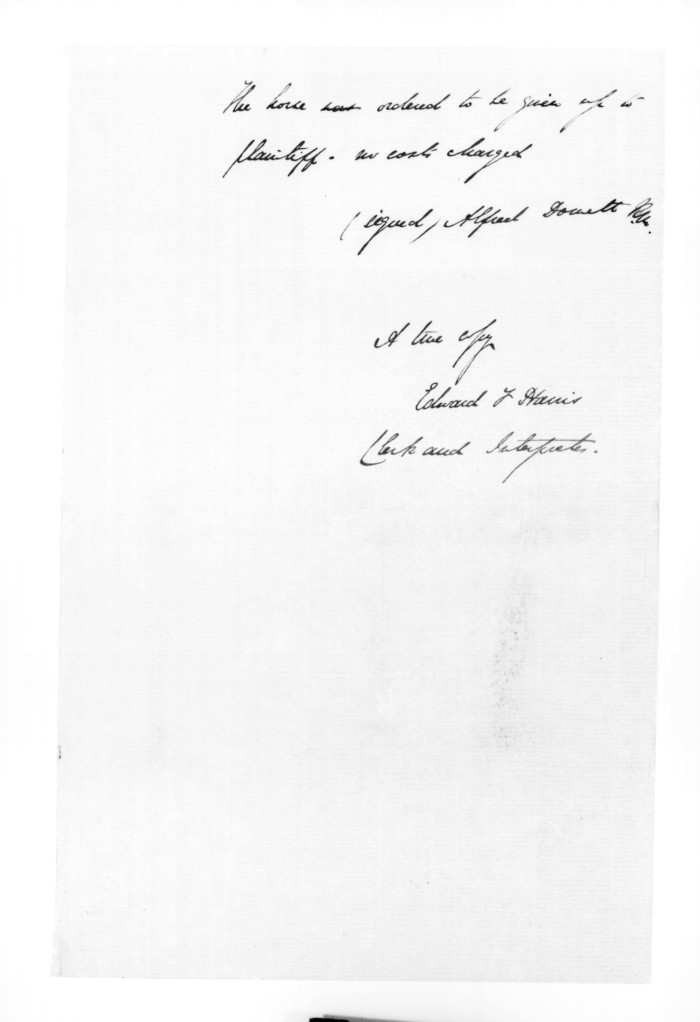 The horse was ordered to be given up to
plaintiff. no costs charged
(signed) Alfred Domett R.M.
A true copy
Edward F Harris
Clerk and Interpreter.